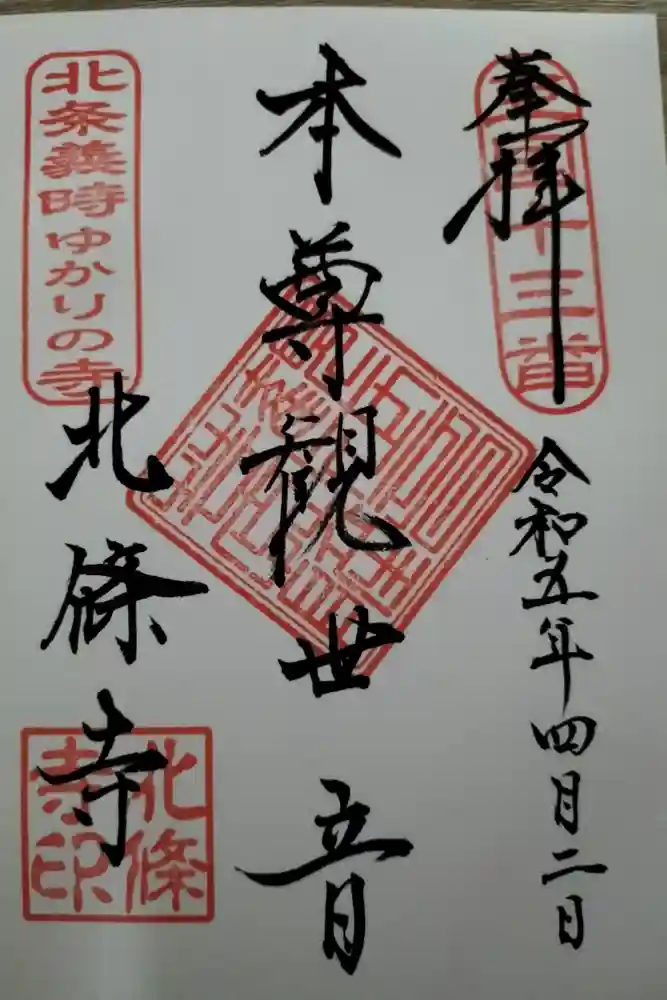 奉拝
令和五年四月二日
本尊観世音
北条義時ゆかりの寺
北條寺
北條寺印